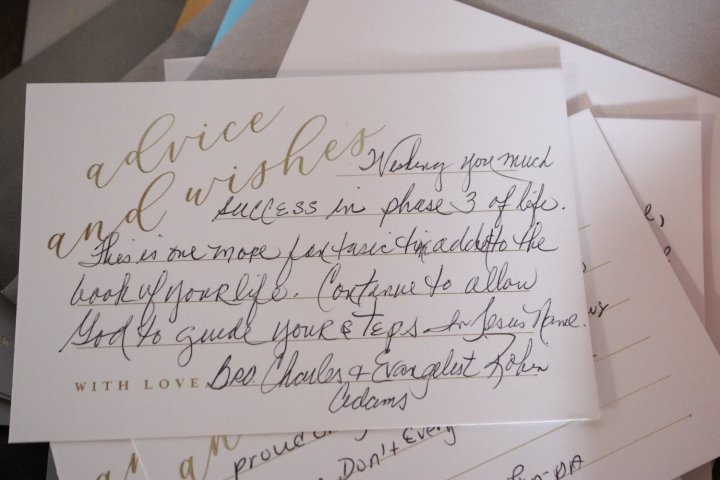 advice
and wishes
Wishing you much
success in phase 3 of life.
This is one more fantastic add to the
book of your life. Continue to allow
God to guide your steps In Jesus Name.
WITH LOVE Bro. Charles + Evangelist Robin
Adams
an
an
proud
Don't Every